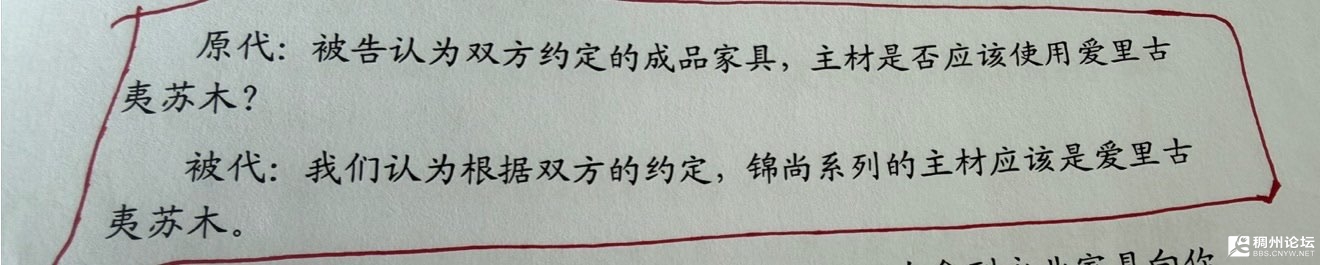 原代：被告认为双方约定的成品家具，主材是否应该使用爱里古
夷苏木？
被代：我们认为根据双方的约定，锦尚系列的主材应该是爱里古
夷苏木。
稠州论坛
BBS.CNYW.NET